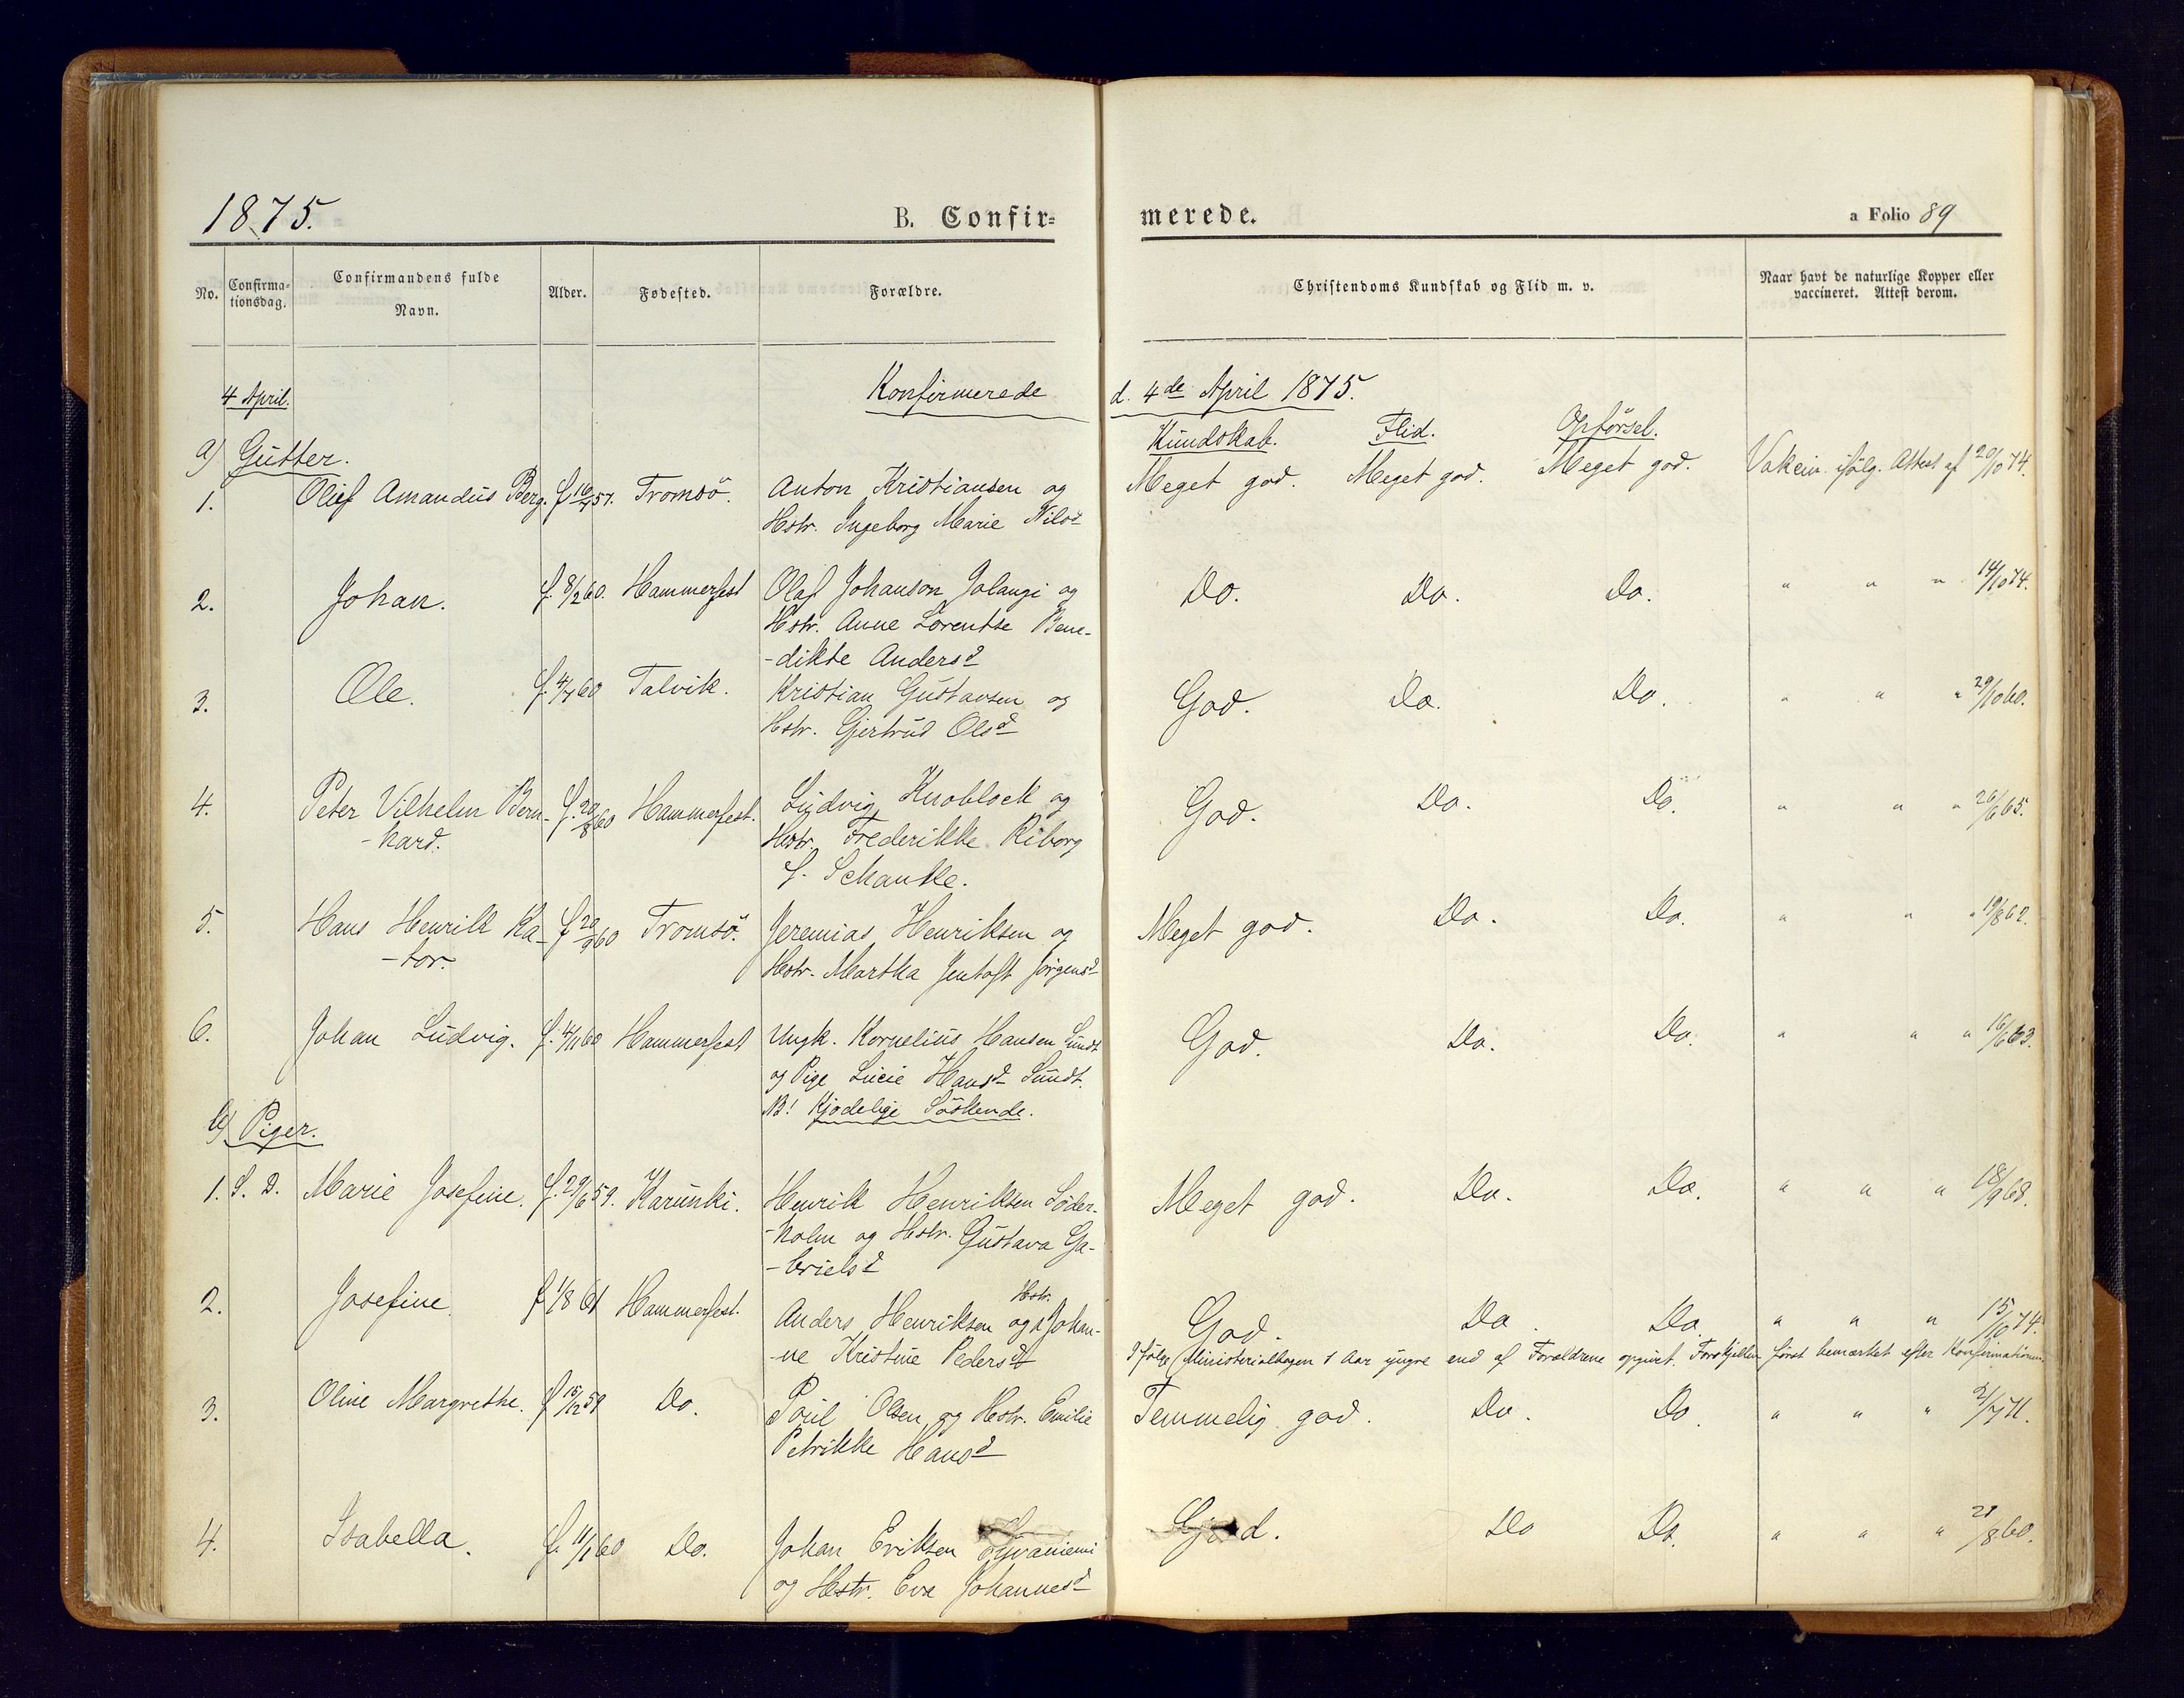 1875.
B. Confir=
merede.
a Folio 89
No.
Confirma=
tionsdag.
Confirmandens fulde
Navn.
Alder.
Fødested.
Forældre.
Christendoms Kundskab og Flid m. v.
Naar havt de naturlige Kopper eller
vaccineret. Attest derom.
4 April.
Konfirmerede
d. 4de April 1875.
a) Gutter.
Kundskab. Flid. Opførsel.
1. Olief Amandus Berg. f. 16/4 57. Tromsö. Anton Kristiansen og Meget god. Meget god. Meget god. Vakcin. ifølg. Attest af 20/10 74.
Hstr. Ingeborg Marie Nilsd
2. Johan. f. 8/2 60. Hammerfest Olaf Johanson Jolangi og Do. Do. Do. " " " 14/10 74.
Hstr. Anne Lorentse Bene-
-dikte Andersd
3. Ole. f. 4/7 60 Talvik. Kristian Gustavsen og God. Do. Do. " " " 29/10 60.
Hstr. Gjertrud Olsd
4. Peter Vilhelm Bern- f. 20/8 60 Hammerfest. Ludvig Knoblock og God. Do. Do. " " " 26/6 65.
-hard. Hstr. Frederikke Riborg
f. Schanke.
5. Hans Henrik Ka- f. 20/9 60 Tromsö. Jeremias Henriksen og Meget god. Do. Do. " " " 19/8 62.
-tor. Hstr. Martha Jentoft Jörgensd
6. Johan Ludvig. f. 4/11 60 Hammerfest Ungk. Kornelius Hansen Sundt God. Do. Do. " " " 16/6 63.
og Pige Lucie Hansd Sundt.
NB! Kjødelige Söskende.
b) Piger.
1. S. D. Marie Josefine. f. 29/6 59. Karunki. Henrik Henriksen Söder- Meget god. Do. Do. " " " 18/9 68.
-holm og Hstr. Gustava Ga-
-brielsd
2. Josefine. f 1/8 61 Hammerfest. Anders Henriksen og Hstr. Johan- God. Do. Do. " " " 15/10 74.
-ne Kristine Pedersd Ifølge Ministerialbogen 1 Aar yngre end af Forældrene opgivet. Forskjellen først bemærket efter Konfirmationen.
3. Oline Margrethe. f 15/12 59 Do. Poul Olsen og Hstr. Emilie Temmelig god. Do. Do. " " " 2/7 71.
Petrikke Hansd
4. Isabella. f. 11/1 60 Do. Johan Eriksen God. Do Do. " " " 21/8 60.
og Hstr. Eva Johannesd